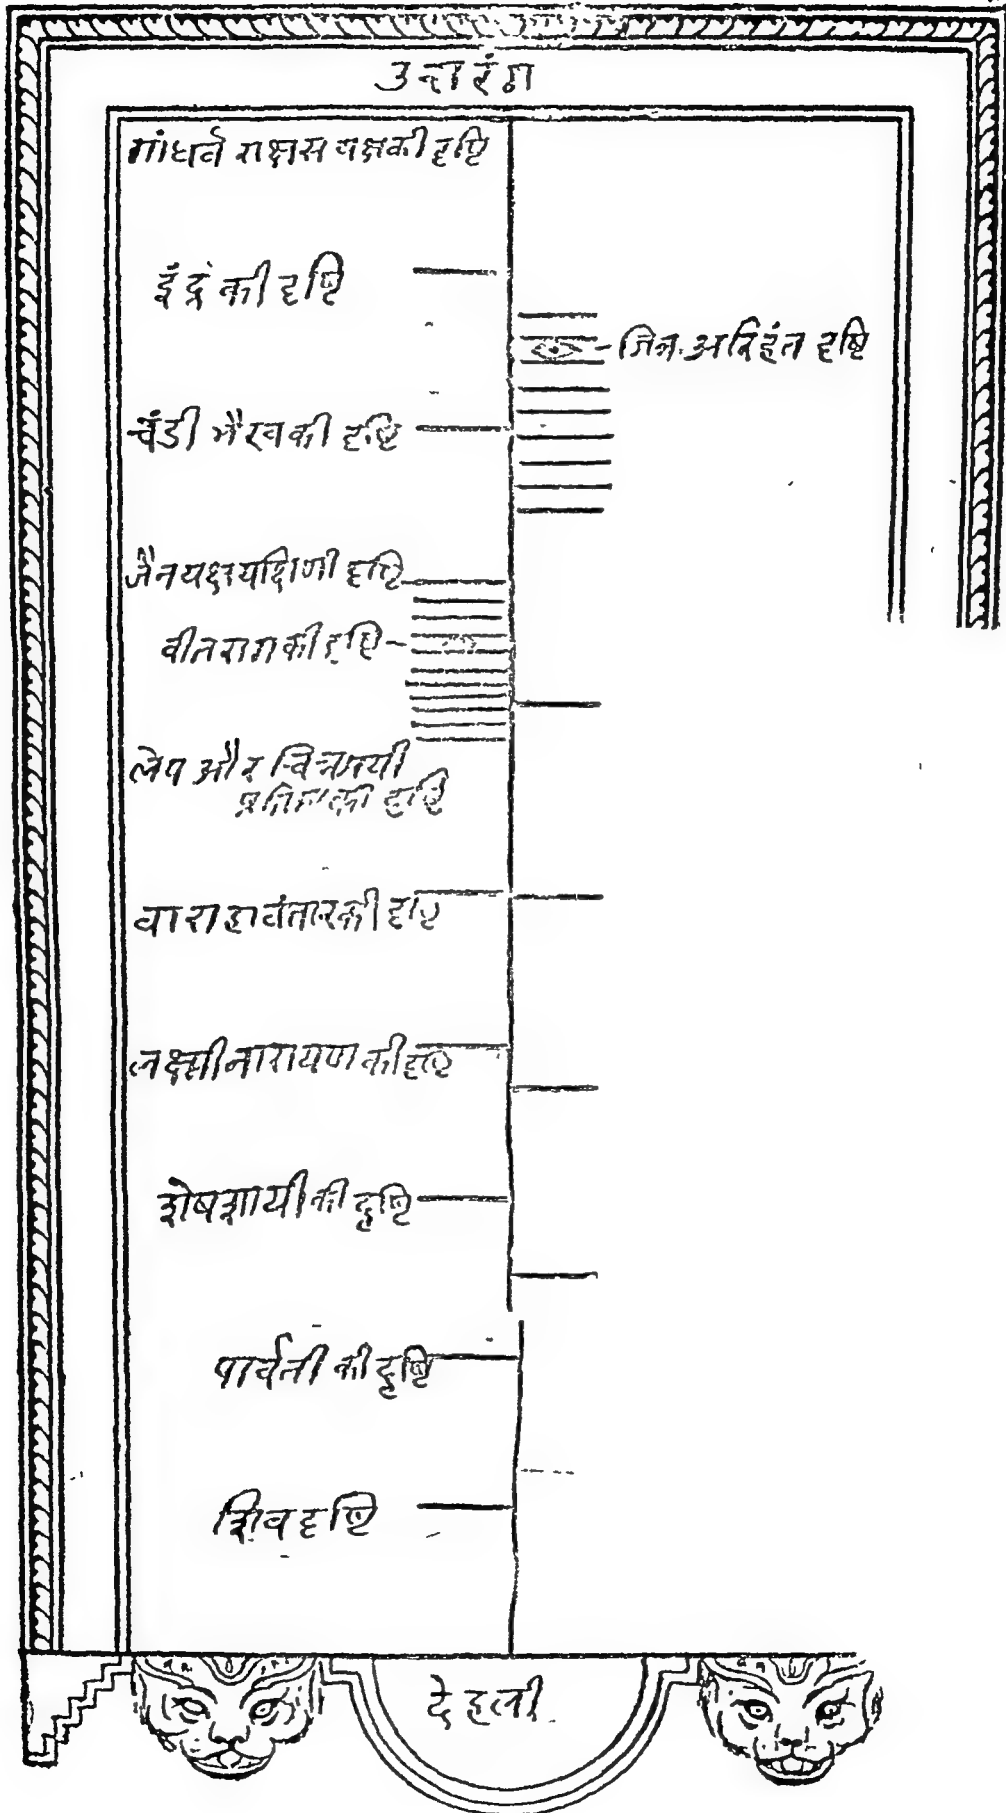 उत्तरंग
गांधर्व राक्षस यक्षकी दृष्टि
इंद्र की दृष्टि
जिन अरिहंत दृष्टि
चंडी भैरवकी दृष्टि
जैनयक्षयक्षिणी दृष्टि
वीतरागकी दृष्टि
लेप और चित्रमयी
की दृष्टि
वाराहावंतारकी दृष्टि
लक्ष्मीनारायण की दृष्टि
शेषशायी की दृष्टि
पार्वती की दृष्टि
शिव दृष्टि
देहली